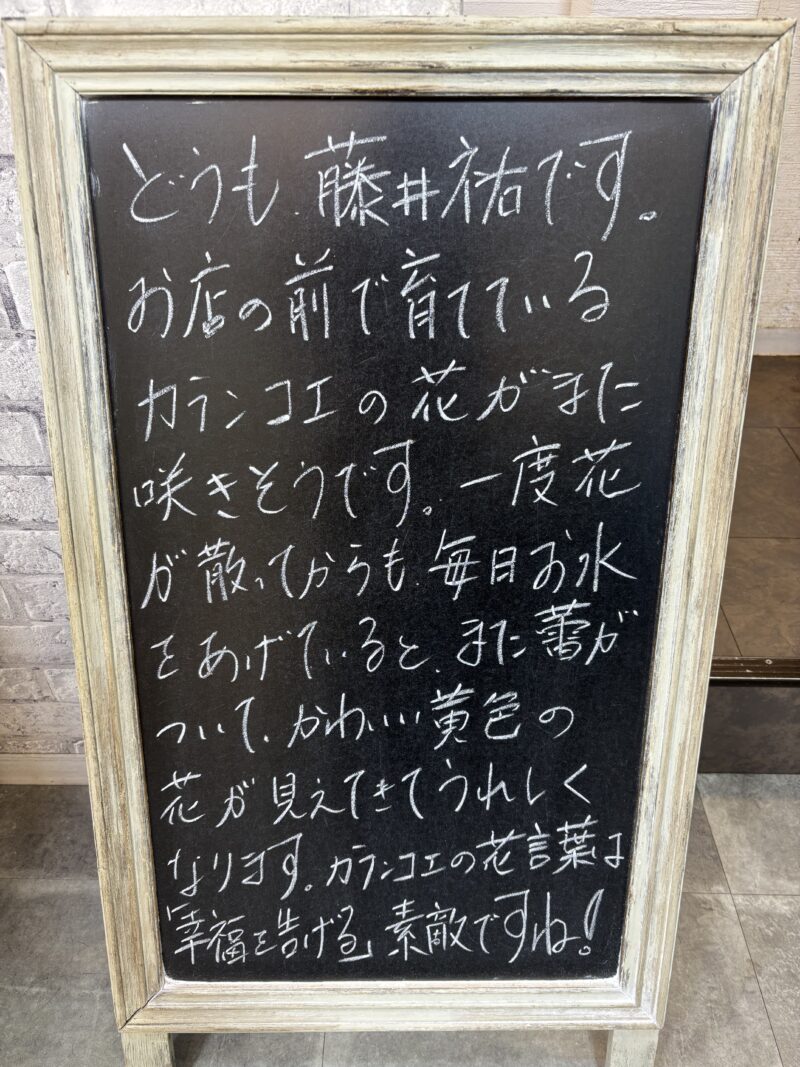 どうも、藤井祐です。
お店の前で育てている
カランコエの花がまた
咲きそうです。一度花
が散ってからも、毎日お水
をあげていると、また蕾が
ついて、かわいい黄色の
花が見えてきてうれしく
なります。カランコエの花言葉は
「幸福を告げる」素敵ですね!